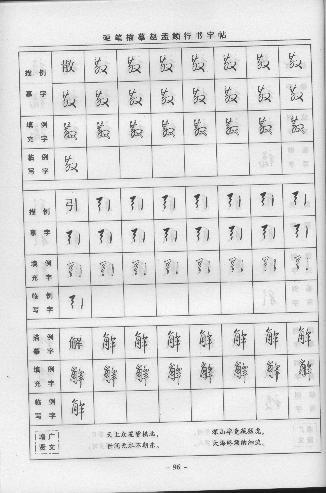 硬笔描摹赵孟頫行书字帖
描 例 散 散 散 散 散 散 散 散
摹 字 散 散 散 散 散 散 散 散
填 例 散 散 散 散 散 散 散 散
充 字
临 例 散
写 字
描 例 引 引 引 引 引 引 引 引
摹 字 引 引 引 引 引 引 引 引
填 例 引 引 引 引 引 引 引 引
充 字
临 例 引
写 字
描 例 解 解 解 解 解 解 解 解
摹 字
填 例 解 解 解 解 解 解 解 解
充 字
临 例 解
写 字
增 广
贤 文
天上众星皆拱北,
世间无水不朝东。
- 96 -